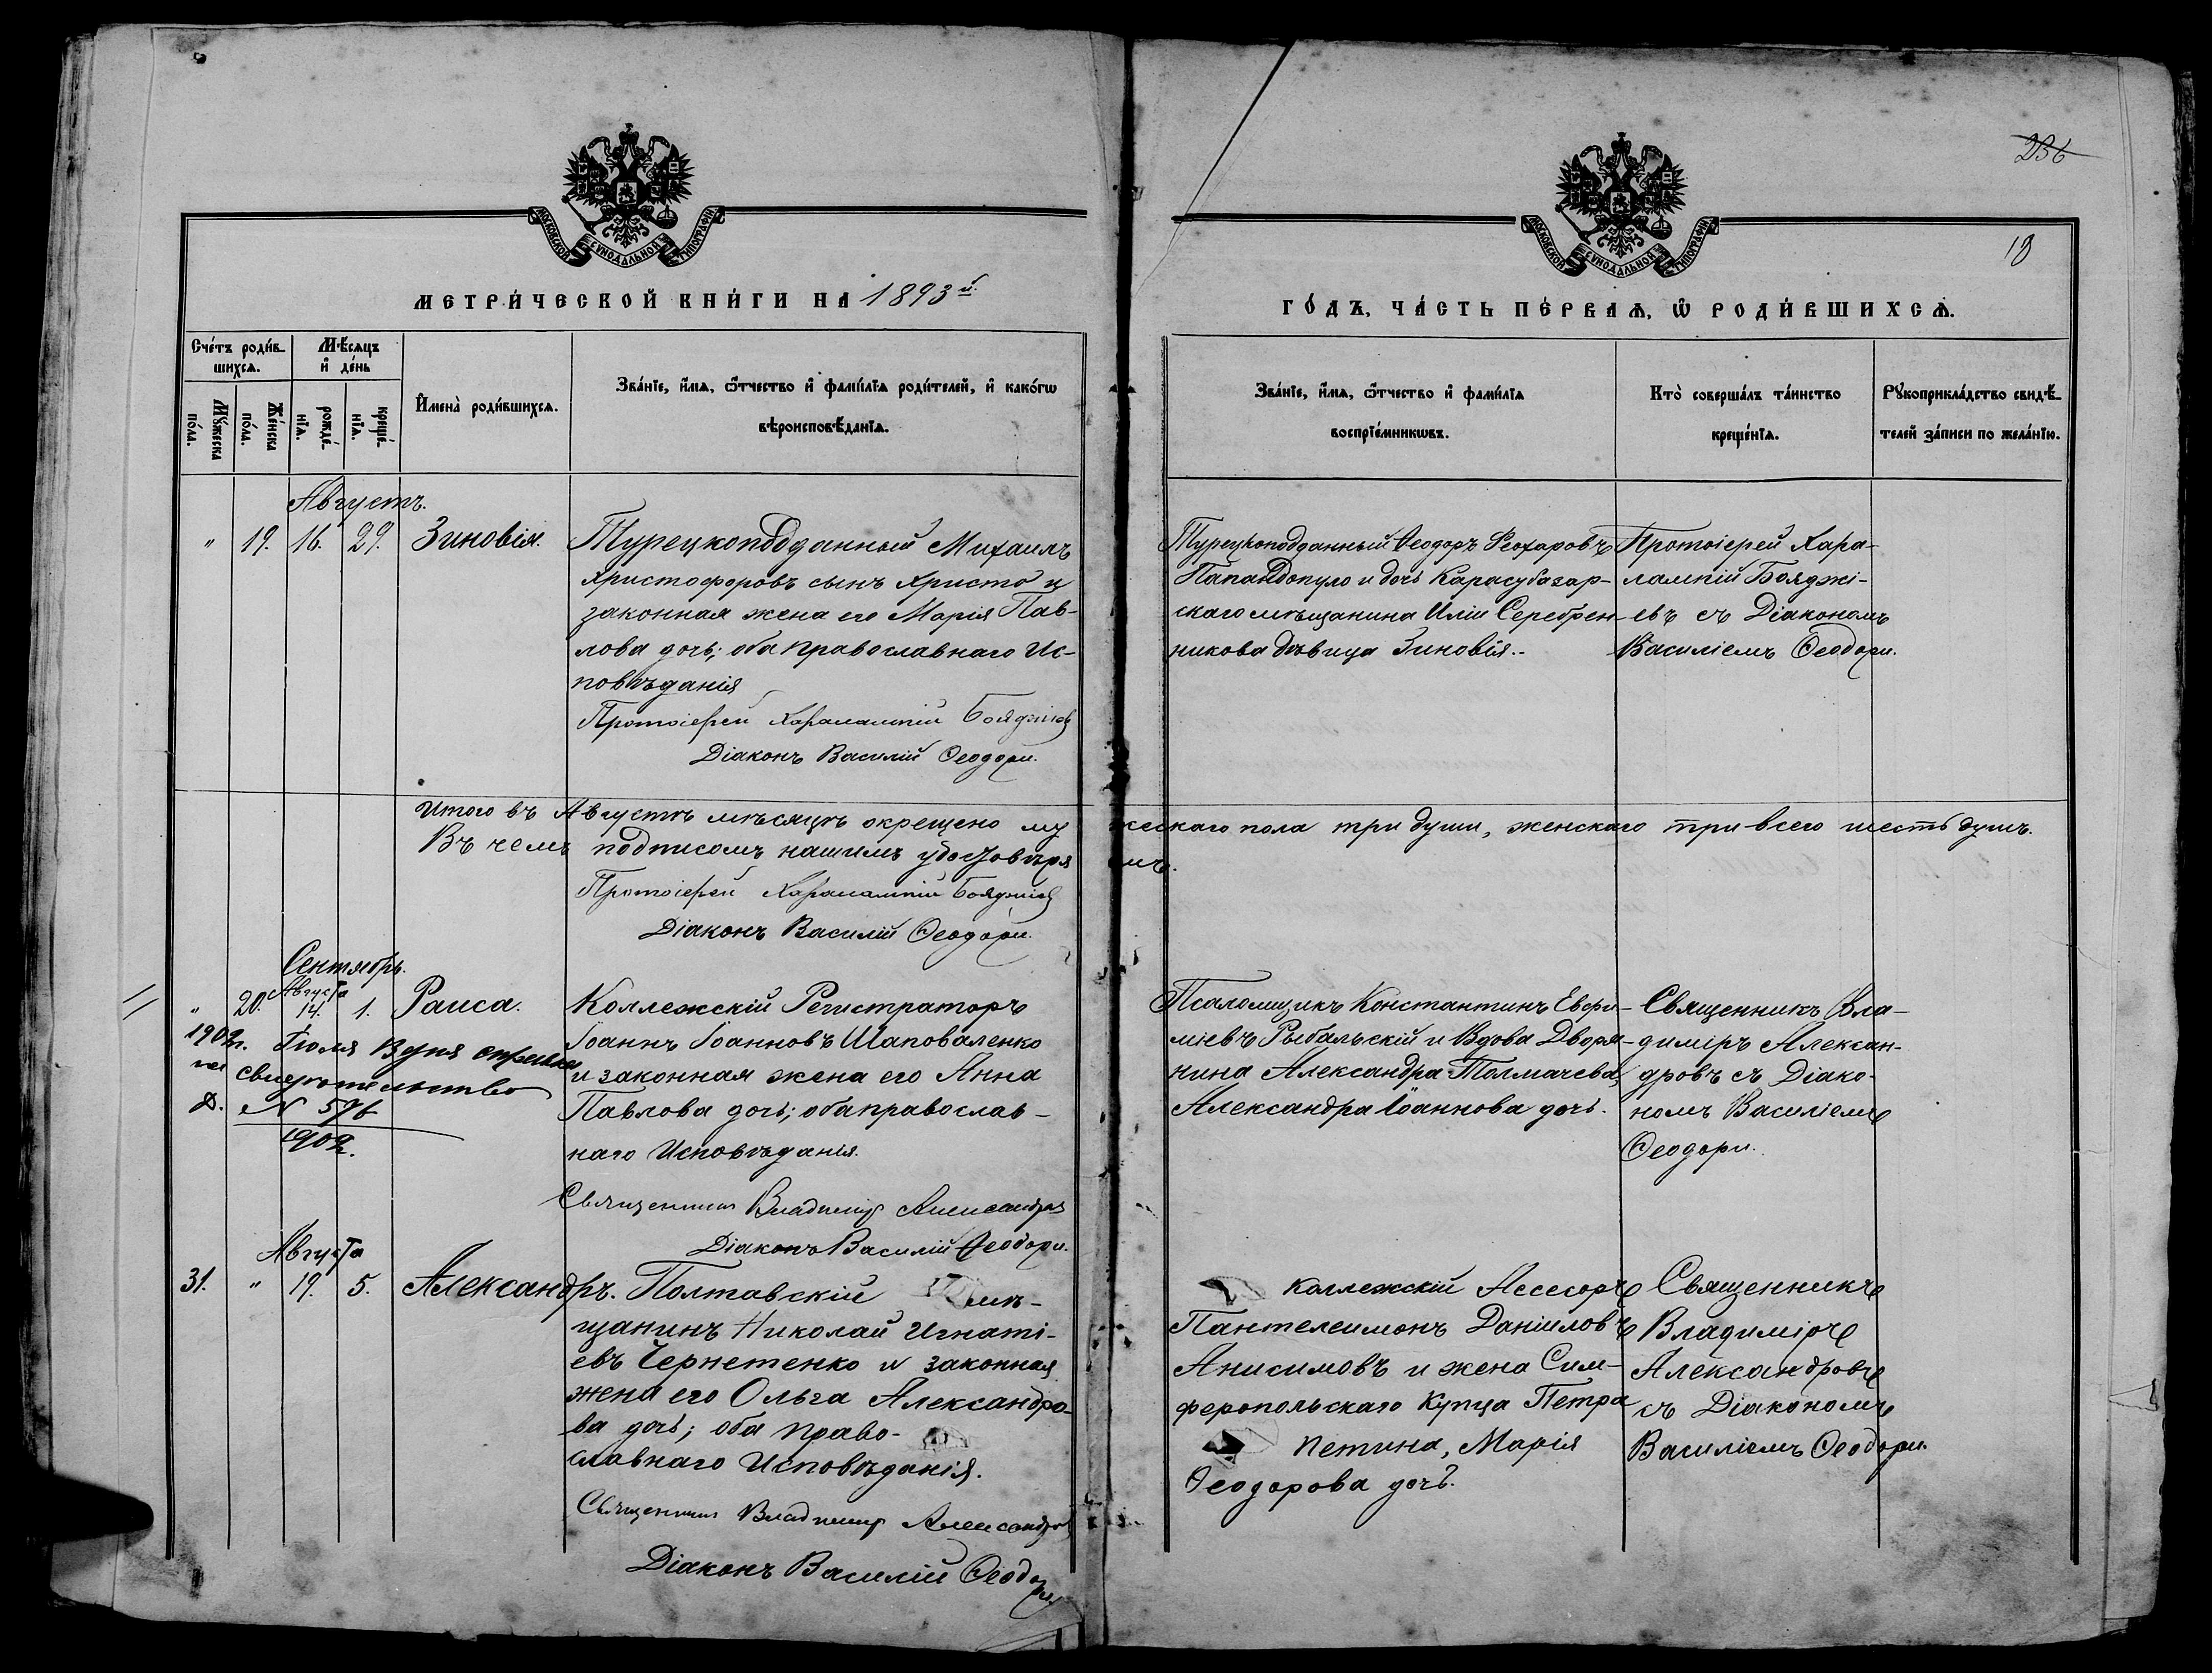 236
18
МОСКОВСКОЙ СѴНОДАЛЬНОЙ ТИПОГРАФІИ
МОСКОВСКОЙ СѴНОДАЛЬНОЙ ТИПОГРАФІИ
МЕТРИ́ЧЕСКОЙ КНИ́ГИ НА 1893й.
ГО́ДЪ, ЧА́СТЬ ПЕ́РВАѦ, Ѿ РОДИ́ВШИХСѦ.
Сче́тъ роди́в-
шихсѧ.
Мꙋ́жеска
по́ла.
Же́нска
по́ла.
Мѣ́сѧцъ
и҆ де́нь
рожде́-
нїѧ.
креще́-
нїѧ.
И҆мена̀ роди́вшихсѧ.
Зва́нїе, и҆́мѧ, ѻ҆́тчество и҆ фами́лїѧ роди́телей, и҆ како́гѡ
вѣроисповѣ́данїѧ.
Зва́нїе, и҆́мѧ, ѻ҆́тчество и҆ фами́лїѧ
воспрїе́мникѡвъ.
Кто̀ соверша́лъ та́инство
креще́нїѧ.
Рꙋкоприкла́дство свидѣ́-
телей за́писи по жела́нїю.
Августъ.
" 19. 16. 29. Зиновія.
Турецкоподданный Михаилъ
Христофоровъ сынъ Христо и
законная жена его Марія Пав-
лова дочь; оба православнаго Ис-
повѣданія
Протоіерей Харалампій Бояджіевъ
Діаконъ Василій Ѳеодори.
Турецкоподданный Ѳеодоръ
Папандопуло и дочь Карасубазар-
скаго мѣщанина Иліи Серебрен-
никова дѣвица Зиновія.
Протоіерей Хара-
лампій Бояджі-
евъ съ Діакономъ
Василіемъ Ѳеодори.
Итого въ Августѣ мѣсяцѣ окрещено мужескаго пола три души, женскаго три всего шесть душъ.
Въ чемъ подписомъ нашимъ удостовѣряемъ.
Протоіерей Харалампій Бояджіевъ
Діаконъ Василій Ѳеодори.
Сентябрь.
Августа
" 20. 14. 1. Раиса.
1902г. Іюля
свидѣтельство
№ 576
1902.
Коллежскій Регистраторъ
Іоаннъ Іоанновъ Шаповаленко
и законная жена его Анна
Павлова дочь; оба православ-
наго Исповѣданія.
Священникъ Владиміръ Александровъ
Діаконъ Василій Ѳеодори.
Псаломщикъ Константинъ Евфи-
міевъ Рыбальскій и Вдова Дворя-
нина Александра Толмачева,
Александра Іоаннова дочь.
Священникъ Вла-
диміръ Алексан-
дровъ съ Діако-
номъ Василіемъ
Ѳеодори.
Августа
31. " 19. 5. Александръ.
Полтавскій мѣ-
щанинъ Николай Игнаті-
евъ Чернетенко и законная
жена его Ольга Александро-
ва дочь; оба право-
славнаго Исповѣданія.
Священникъ Владиміръ Александровъ
Діаконъ Василій Ѳеодори
Коллежскій Асессоръ
Пантелеимонъ Даніиловъ
Анисимовъ и жена Сим-
феропольскаго Купца Петра
Петина, Марія
Ѳеодорова дочь.
Священникъ
Владиміръ
Александровъ
съ Діакономъ
Василіемъ Ѳеодори.